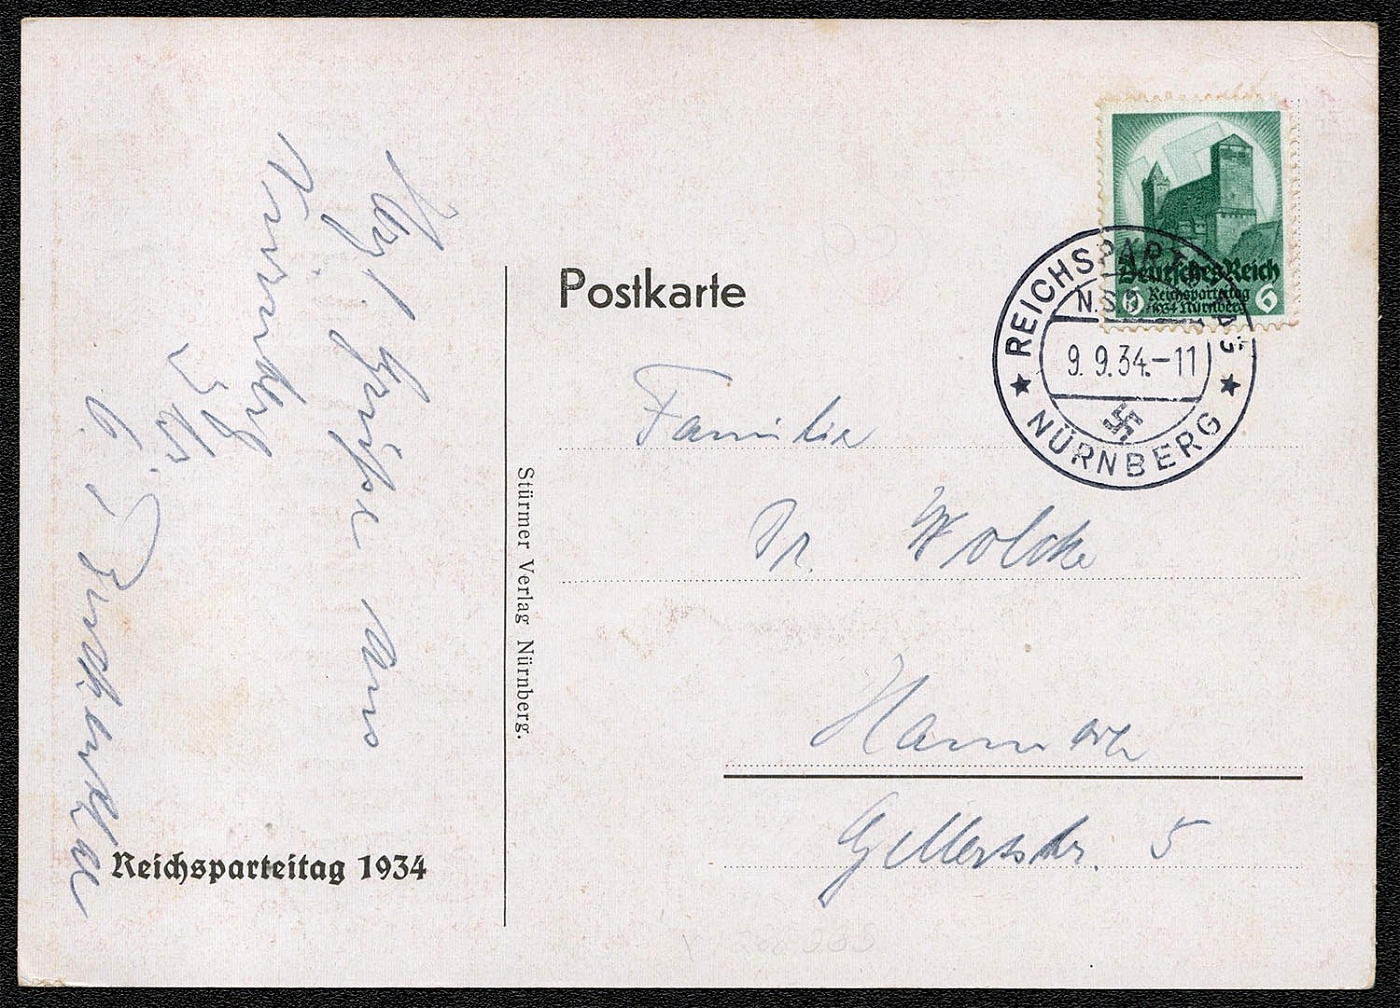 Herzl. Grüße aus
Nürnberg
Reichsparteitag 1934
Stürmer Verlag Nürnberg.
Postkarte
Familie
Dr. Wolcke
Hannover
Gellertstr. 5
Deutsches Reich
6 Reichsparteitag 6
1934 Nürnberg
REICHSPARTEITAG
N.S.D.A.P.
9.9.34.-11
NÜRNBERG